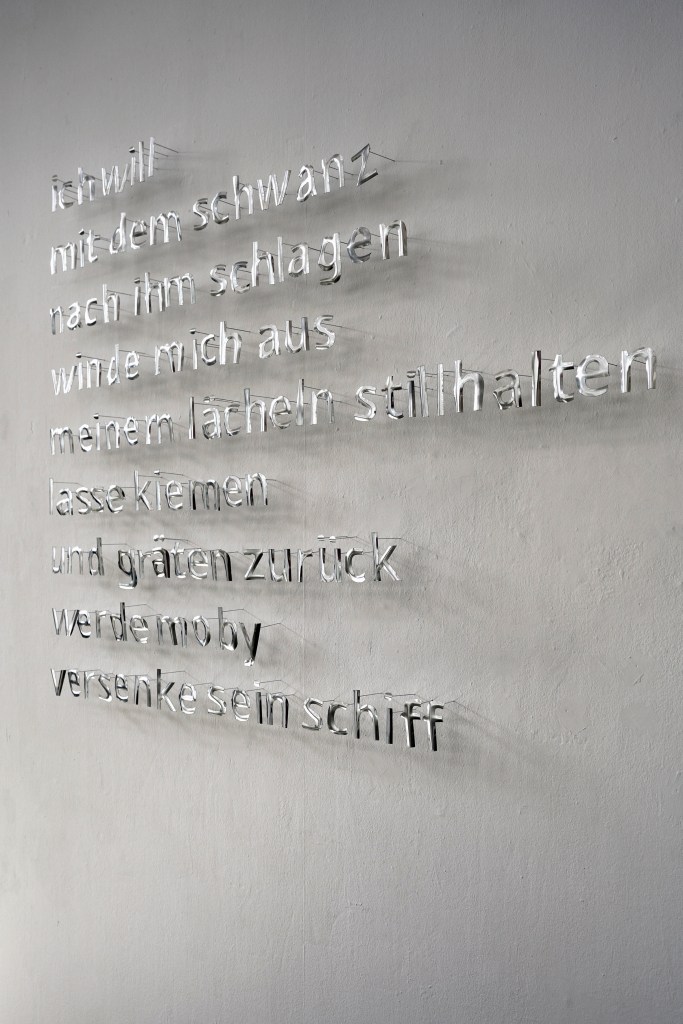 ich will
mit dem schwanz
nach ihm schlagen
winde mich aus
meinem lächeln stillhalten
lasse kiemen
und gräten zurück
werde moby
versenke sein schiff